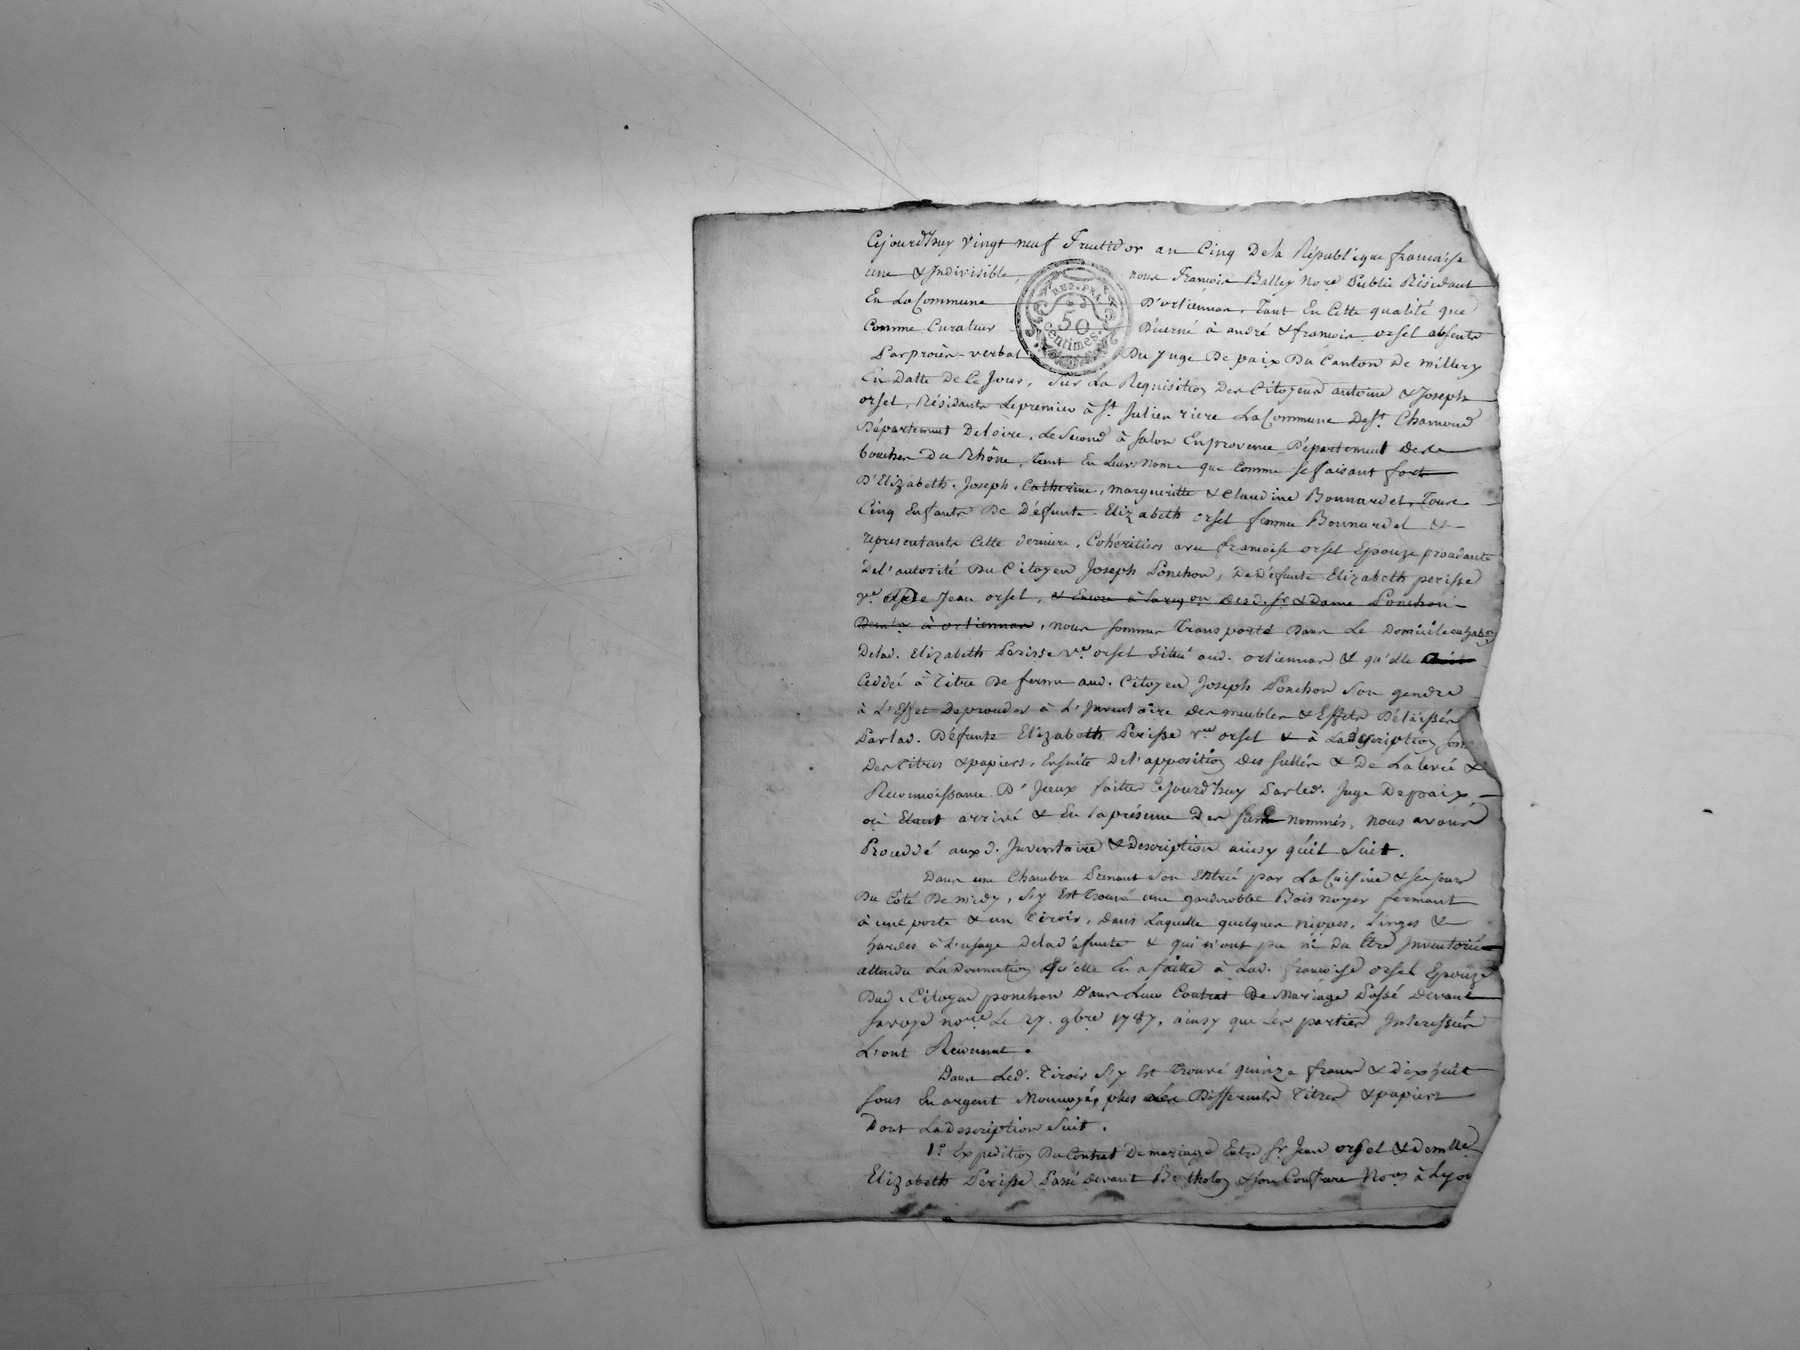 Cejourd'huy vingt neuf fructidor an Cinq De la Republique francaise
une & Indivisible, nous francois Balley No.re Public Résidant
En La Commune D'orliennas, Tant En Cette qualité que
Comme Curateur Décerné à andré & francois orsel absents
Par procès-verbal Du Juge De paix Du Canton de millery
En Datte De Ce Jour, Sur La Requisition Des Citoyens antoine & Joseph
orsel, Résidants Le premier à St. Julien riere La Commune De St. Chamond
Département De Loire, Le Second à Salon En provence Département des
bouches Du Rhône, Tant En Leurs Noms que Comme se faisant fort
D'Elizabeth, Joseph, Catherine, margueritte & Claudine Bonnardel, Tous
Cinq Enfants De Défunte Elizabeth orsel femme Bonnardel &
representants Cette derniere, Cohéritiers avec francoise orsel Epouze procédante
De L'autorité Du Citoyen Joseph Ponchon, De Défunte Elizabeth perisse
v.e De Jean orsel, & Encore à La réq.on Des d. Sr. & Dame Ponchon
Dem.ts à orliennas, nous sommes Transporté Dans Le Domicile ou hab.on
De lad. Elizabeth Périsse v.e orsel Situé aud. orliennas & qu'elle
Ceddé à Titre De ferme aud. Citoyen Joseph Ponchon Son gendre
à L'Effet De procéder à L'Inventaire Des meubles & Effets Délaissés
Par lad. Défunte Elizabeth Périsse v.e orsel & à La description
Des Titres & papiers, Ensuite De L'apposition Des scellés & De La levée &
Reconnoissance D'Iceux faittes Cejourd'huy Par led. Juge De paix,
où Etant arrivé & En La présence Des sus nommés, nous avons
Procéddé auxd. Inventaire & Description ainsy qu'il Suit.
Dans une Chambre Prenant Son Entrée par La Cuisine & ses jours
Du Côté De midy, S'y Est Trouvé une garderobbe Bois noyer fermant
à une porte & un Tiroir, Dans Laquelle quelques nippes, Linges &
hardes à L'usage De la défunte & qui n'ont pu ni Du Etre Inventorié
attendu La Donnation qu'elle En a faitte à Lad. francoise orsel Epouze
Dud. Citoyen ponchon Dans Leur Contrat De Mariage Passé Devant
Savoye no.re Le 27. 9bre 1787, ainsy que Les parties Interessées
L'ont Reconnut.
Dans Led. Tiroir S'y Est Trouvé quinze francs & dix huit
sous En argent Monnoyé, plus Les Differents Titres & papiers
Dont La description Suit.
1.o Expedition Du Contrat De mariage Entre Sr. Jean orsel & demlle
Elizabeth Périsse Passé Devant Bertholon & son Confrere No.res à Lyon
REP. FRA.
50
Centimes.